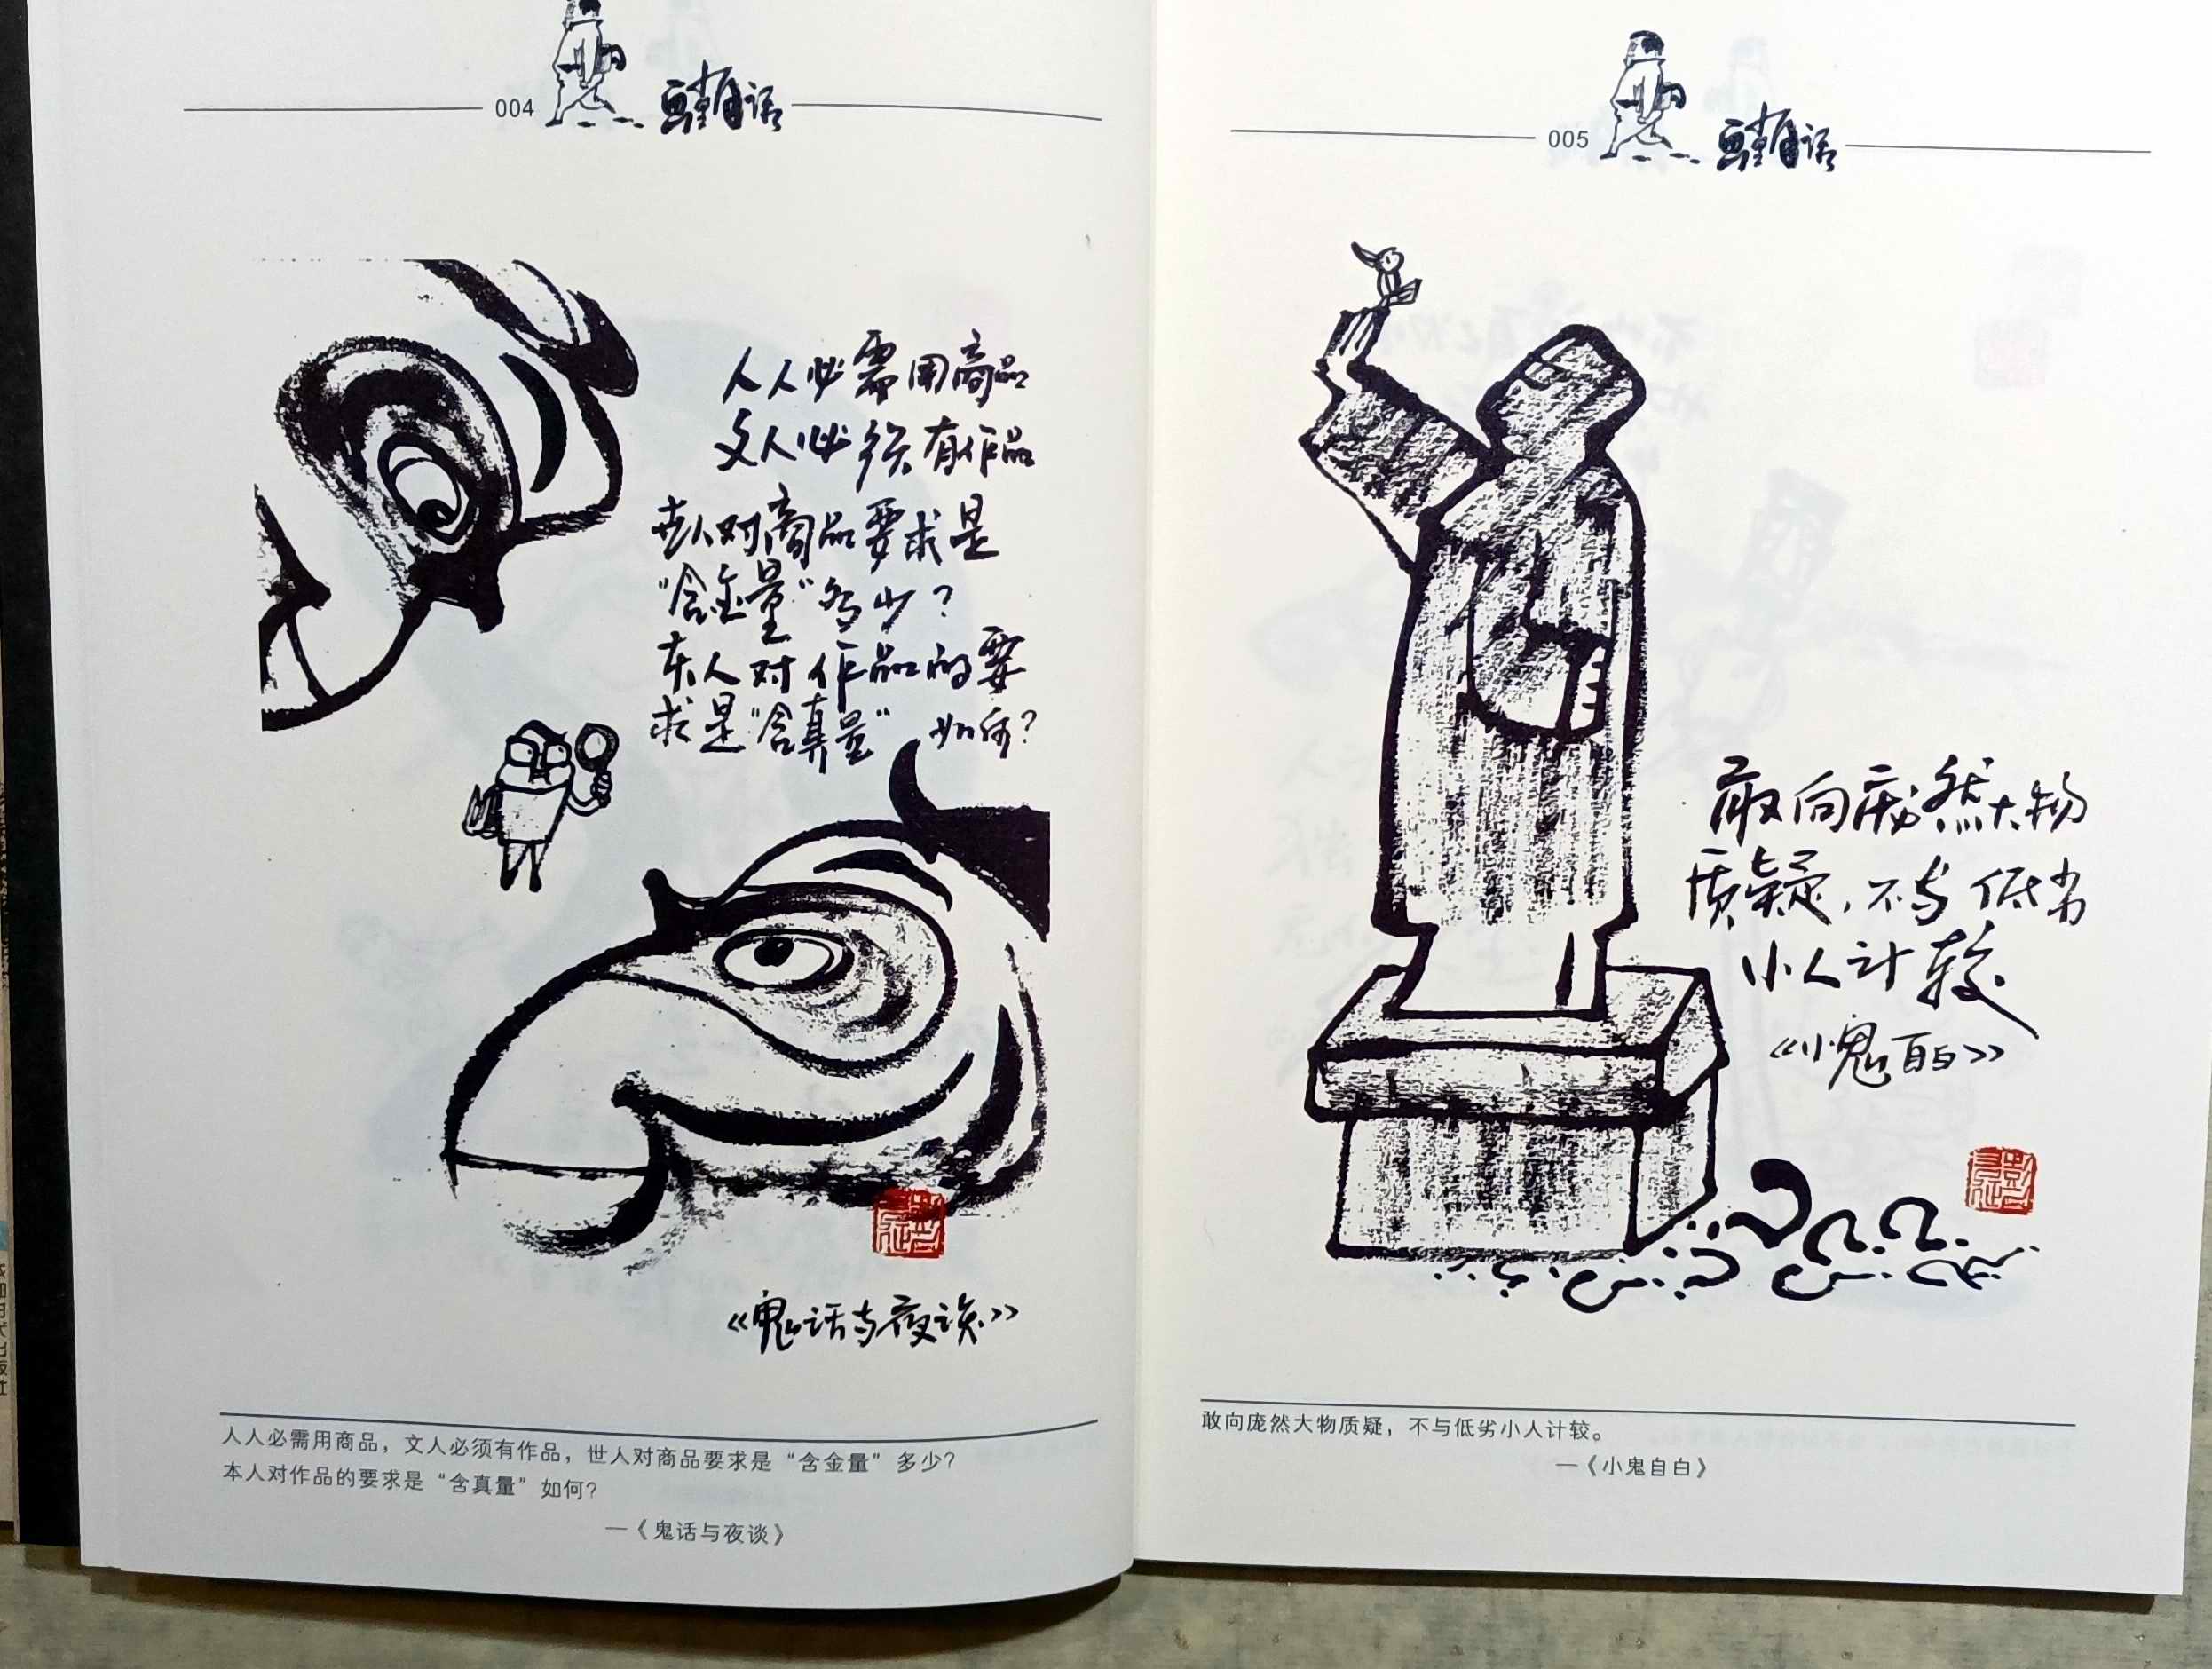 004
人人必需用商品
文人必须有作品
世人对商品要求是
“含金量”多少?
本人对作品的要
求是“含真量”如何?
《鬼话与夜谈》
人人必需用商品，文人必须有作品，世人对商品要求是“含金量”多少?
本人对作品的要求是“含真量”如何?
—《鬼话与夜谈》
005
敢向庞然大物
质疑，不与低劣
小人计较
《小鬼自白》
敢向庞然大物质疑，不与低劣小人计较。
—《小鬼自白》